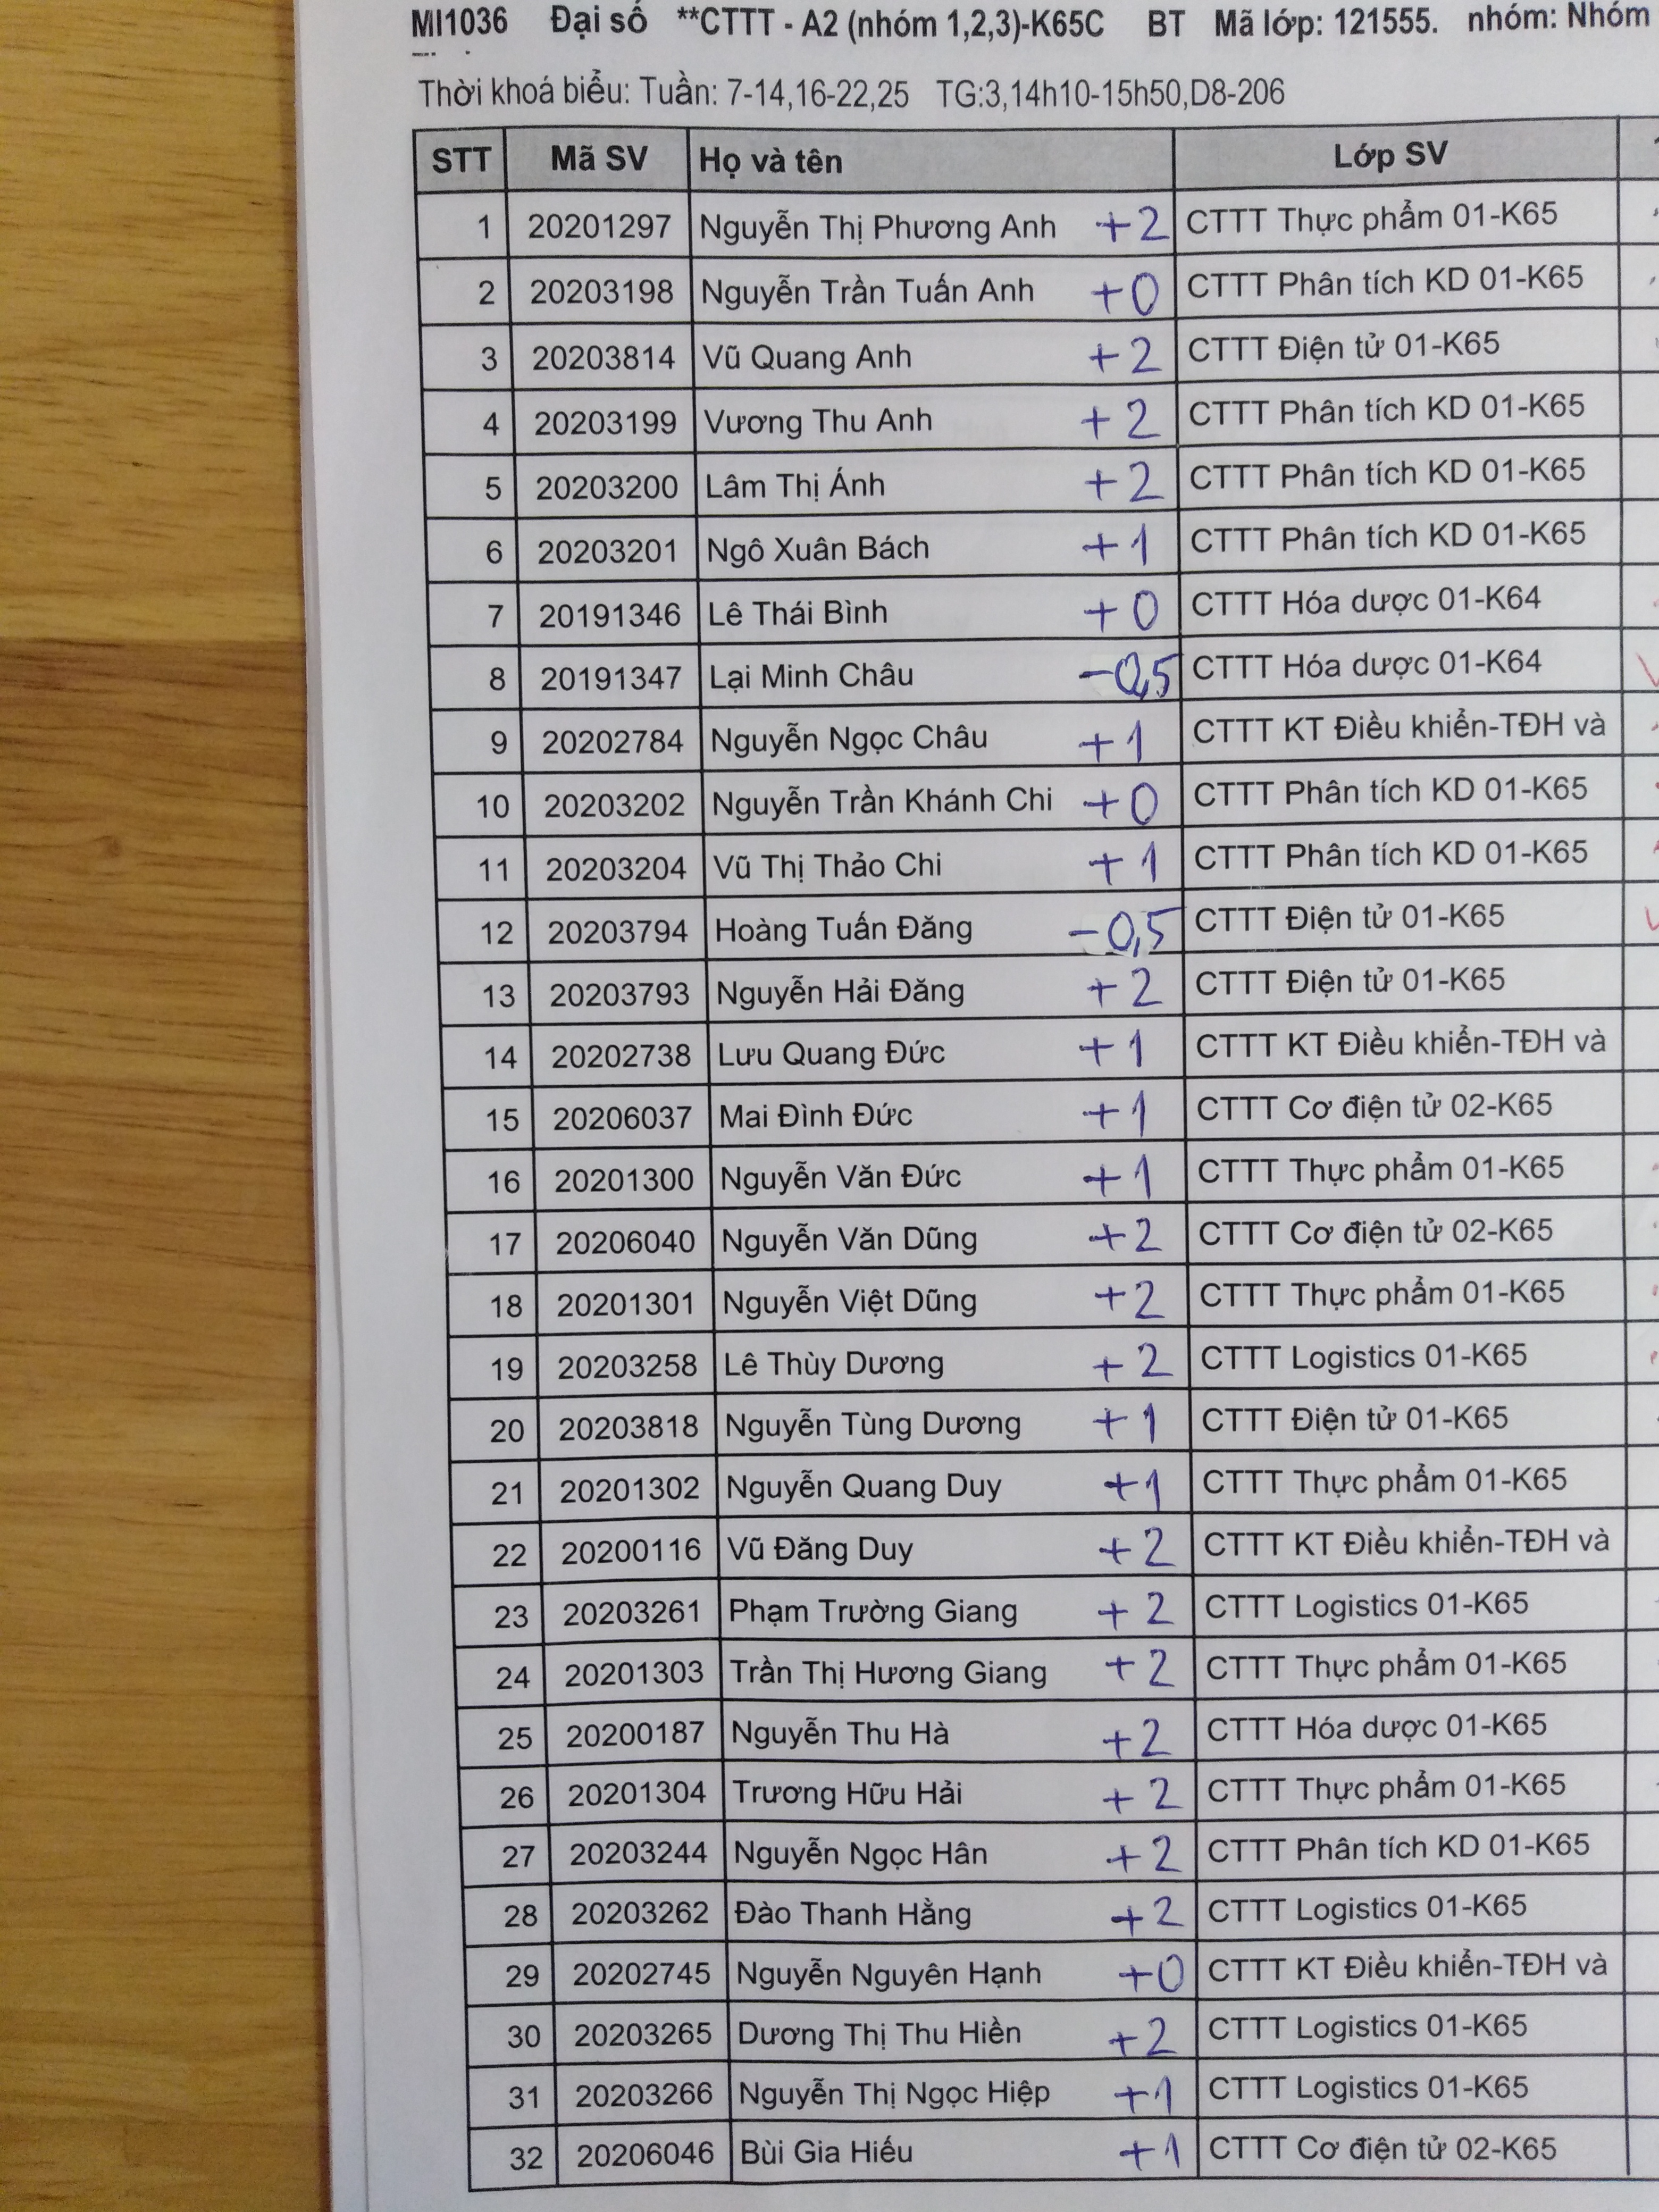 MI1036 Đại số **CTTT - A2 (nhóm 1,2,3)-K65C BT Mã lớp: 121555. nhóm: Nhóm
Thời khoá biểu: Tuần: 7-14,16-22,25 TG:3,14h10-15h50,D8-206
STT Mã SV Họ và tên Lớp SV
1 20201297 Nguyễn Thị Phương Anh +2 CTTT Thực phẩm 01-K65
2 20203198 Nguyễn Trần Tuấn Anh +0 CTTT Phân tích KD 01-K65
3 20203814 Vũ Quang Anh +2 CTTT Điện tử 01-K65
4 20203199 Vương Thu Anh +2 CTTT Phân tích KD 01-K65
5 20203200 Lâm Thị Ánh +2 CTTT Phân tích KD 01-K65
6 20203201 Ngô Xuân Bách +1 CTTT Phân tích KD 01-K65
7 20191346 Lê Thái Bình +0 CTTT Hóa dược 01-K64
8 20191347 Lại Minh Châu -0,5 CTTT Hóa dược 01-K64
9 20202784 Nguyễn Ngọc Châu +1 CTTT KT Điều khiển-TĐH và
10 20203202 Nguyễn Trần Khánh Chi +0 CTTT Phân tích KD 01-K65
11 20203204 Vũ Thị Thảo Chi +1 CTTT Phân tích KD 01-K65
12 20203794 Hoàng Tuấn Đăng -0,5 CTTT Điện tử 01-K65
13 20203793 Nguyễn Hải Đăng +2 CTTT Điện tử 01-K65
14 20202738 Lưu Quang Đức +1 CTTT KT Điều khiển-TĐH và
15 20206037 Mai Đình Đức +1 CTTT Cơ điện tử 02-K65
16 20201300 Nguyễn Văn Đức +1 CTTT Thực phẩm 01-K65
17 20206040 Nguyễn Văn Dũng +2 CTTT Cơ điện tử 02-K65
18 20201301 Nguyễn Việt Dũng +2 CTTT Thực phẩm 01-K65
19 20203258 Lê Thùy Dương +2 CTTT Logistics 01-K65
20 20203818 Nguyễn Tùng Dương +1 CTTT Điện tử 01-K65
21 20201302 Nguyễn Quang Duy +1 CTTT Thực phẩm 01-K65
22 20200116 Vũ Đăng Duy +2 CTTT KT Điều khiển-TĐH và
23 20203261 Phạm Trường Giang +2 CTTT Logistics 01-K65
24 20201303 Trần Thị Hương Giang +2 CTTT Thực phẩm 01-K65
25 20200187 Nguyễn Thu Hà +2 CTTT Hóa dược 01-K65
26 20201304 Trương Hữu Hải +2 CTTT Thực phẩm 01-K65
27 20203244 Nguyễn Ngọc Hân +2 CTTT Phân tích KD 01-K65
28 20203262 Đào Thanh Hằng +2 CTTT Logistics 01-K65
29 20202745 Nguyễn Nguyên Hạnh +0 CTTT KT Điều khiển-TĐH và
30 20203265 Dương Thị Thu Hiền +2 CTTT Logistics 01-K65
31 20203266 Nguyễn Thị Ngọc Hiệp +1 CTTT Logistics 01-K65
32 20206046 Bùi Gia Hiếu +1 CTTT Cơ điện tử 02-K65